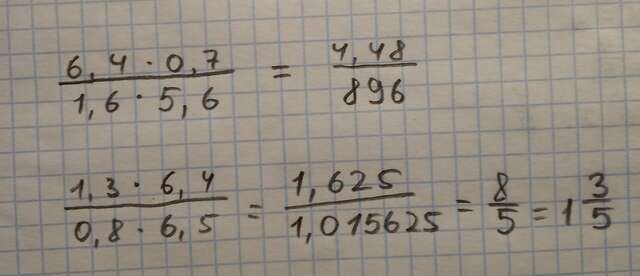 6,4 · 0,7 / 1,6 · 5,6 = 4,48 / 896
1,3 · 6,4 / 0,8 · 6,5 = 1,625 / 1,015625 = 8/5 = 1 3/5